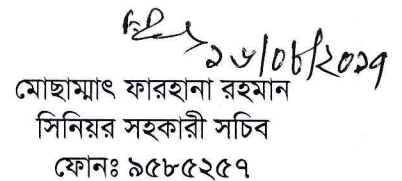 ১৬/০৮/২০১৭
মোছাম্মাৎ ফারহানা রহমান
সিনিয়র সহকারী সচিব
ফোনঃ ৯৫৮৫২৫৭